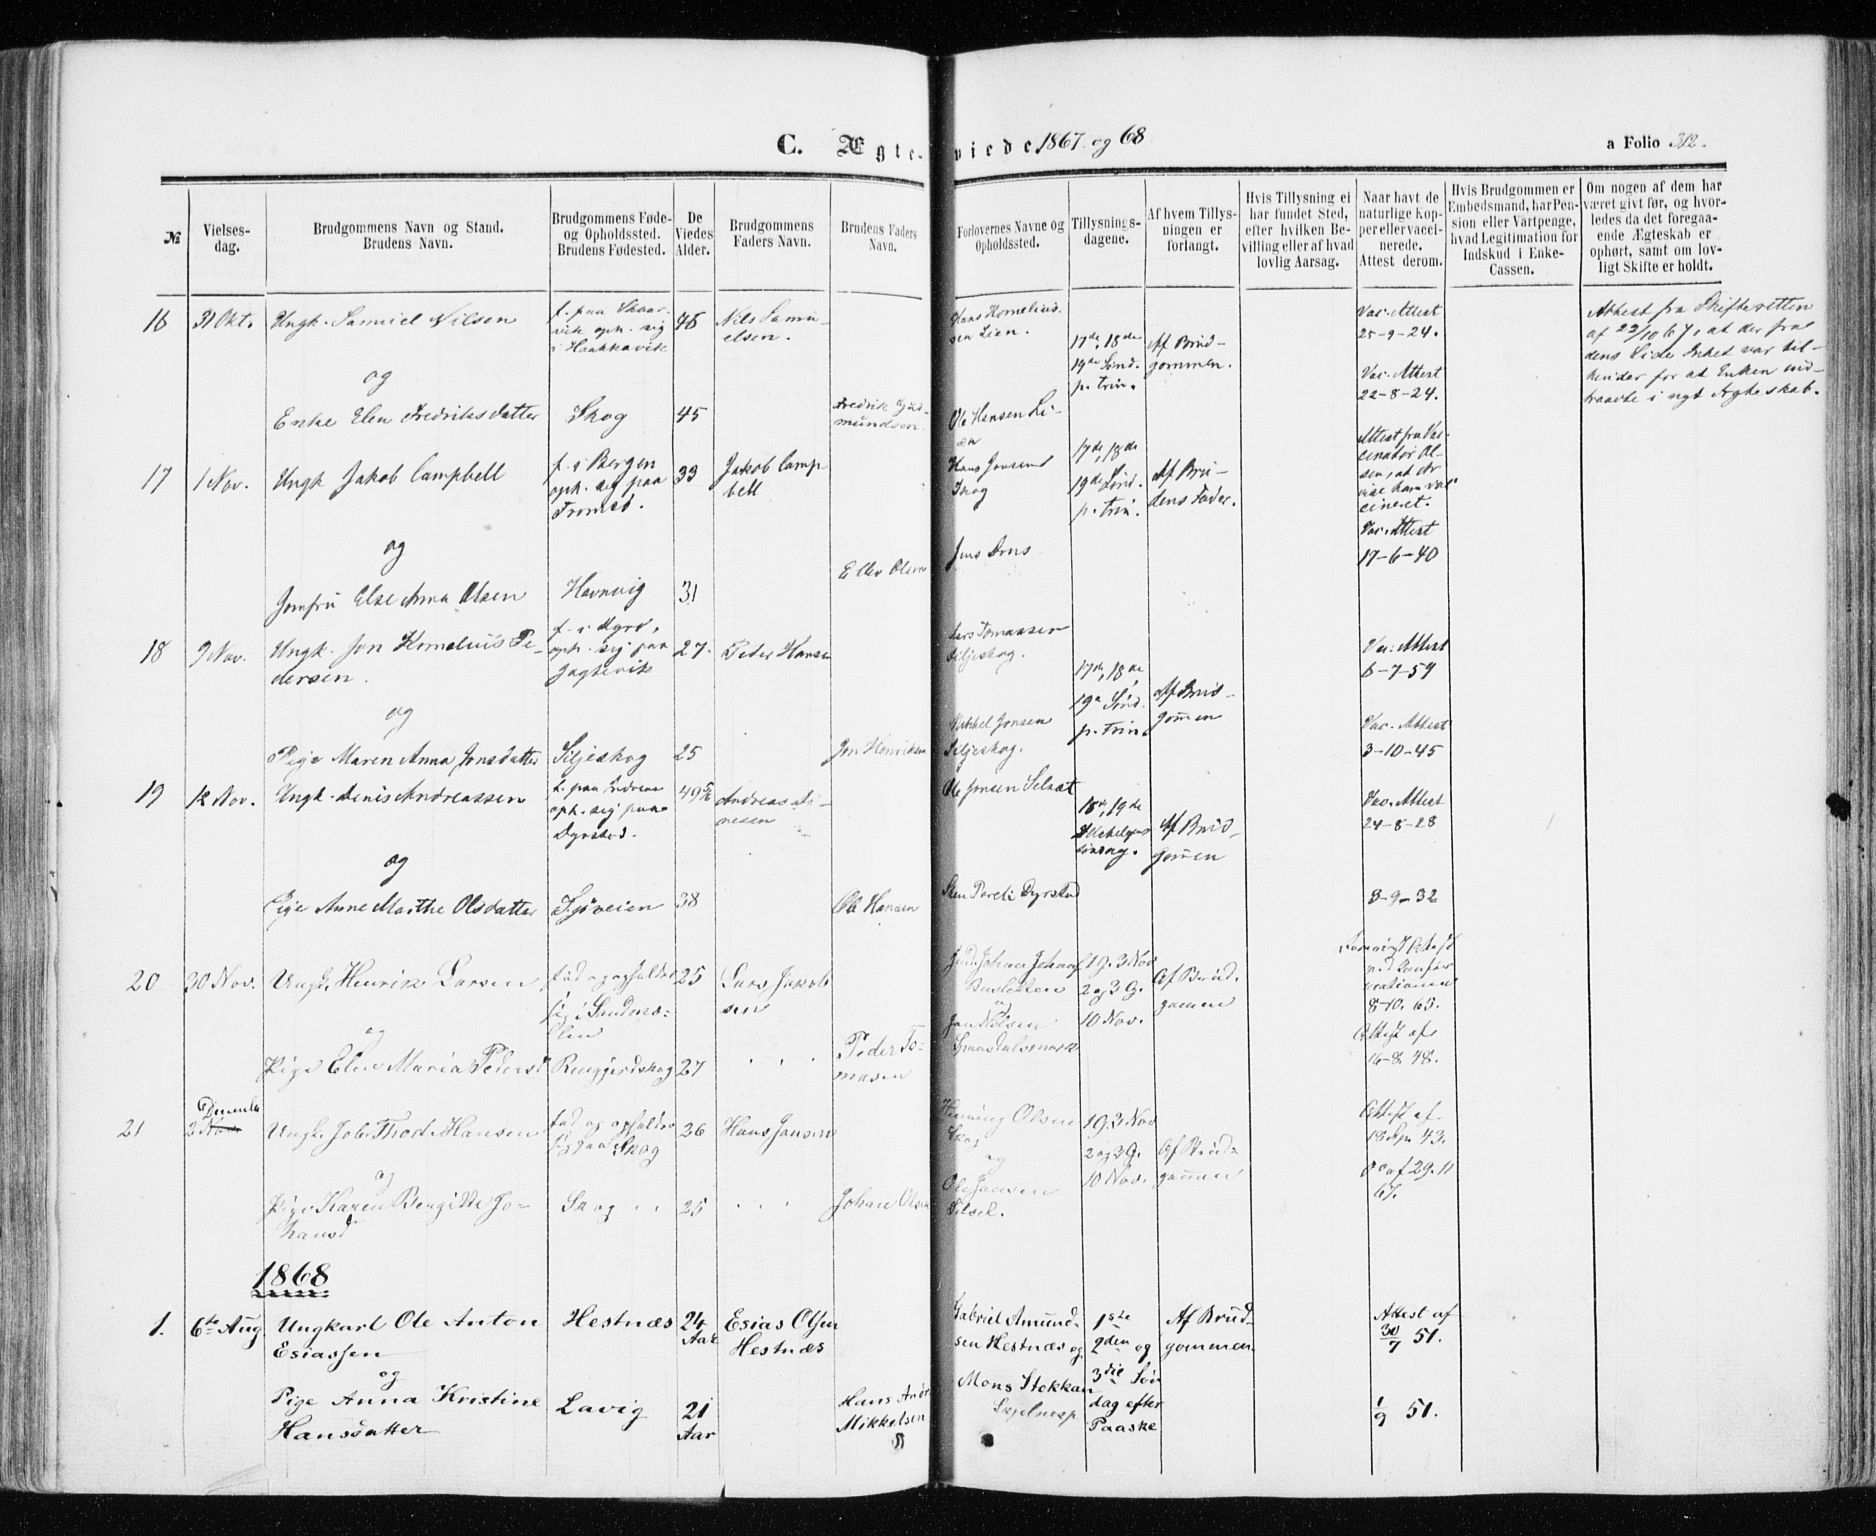 C. Ægteviede 1867 og 68
a Folio 312.
№
Vielses-
dag.
Brudgommens Navn og Stand.
Brudens Navn.
Brudgommens Føde-
og Opholdssted.
Brudens Fødested.
De
Viedes
Alder.
Brudgommens
Faders Navn.
Brudens Faders
Navn.
Forlovernes Navne og
Opholdssted.
Tillysnings-
dagene.
Af hvem Tillys-
ningen er
forlangt.
Hvis Tillysning ei
har fundet Sted,
efter hvilken Be-
villing eller af hvad
lovlig Aarsag.
Naar havt de
naturlige Kop-
per eller vacci-
nerede.
Attest derom.
Hvis Brudgommen er
Embedsmand, har Pen-
sion eller Vartpenge,
hvad Legitimation for
Indskud i Enke-
Cassen.
Om nogen af dem har
været givt før, og hvor-
ledes da det foregaa-
ende Ægteskab er
ophørt, samt om lov-
ligt Skifte er holdt.
16
31 Okt.
Ungk. Samuel Nilsen
og
Enke Elen Fredriksdatter
f. paa Skaar-
vik oph. sig
i Haakkavik
Skog
45
Nils Samu-
elsen.
Fredrik Gud-
mundsen
Hans Kornelius-
sen Lien.
Ole Hansen Li-
en
17de, 18de
19de Sønd.
p. Trin.
Af Brud-
gommen.
Vac. Attest
25-9-24.
Vac. Attest
22-8-24.
Attest fra Skifteretten
af 22/10 67, at der fra
dens Side Intet var til
hinder for at Enken ind-
traadte i nyt Ægteskab.
17
1 Nov.
Ungk Jakob Campbell
og
Jomfru Else Anna Olsen
f. i Bergen
oph. sig paa
Tromsø.
Havnvig
33
31
Jakob Camp
bell
Ellev Olsen
Hans Jensen
Skog
Jens
17de, 18de
19de Sønd.
p. Trin.
Af Bru-
dens Fader.
Attest fra Vac-
cinatør Ol-
sen, at
cineret.
Vac. Attest
17-6-40
18
9 Nov.
Ungk. Jon Kornelius Pe-
dersen.
og
Pige Maren Anna Jonsdatter
f. i Dyrø,
oph. sig paa
Jagtevik
Siljeskog
27.
25
Peder Hansen
Jon Henriksen
Lars Tomassen
Siljeskog.
Mikkel Jonsen
Siljeskog.
17de, 18de
19de Sønd.
p. Trin
Af Brud-
gommen
Vac. Attest
6-7-59
Vac. Attest
3-10-45
19
12 Nov.
Ungk. Denis Andreassen
og
Pige Anne Marthe Olsdatter
f. paa
oph. sig paa
Dyrstad.
Sjøveien
49
38
Andreas
Ole Hansen
Ole Jonsen
18de, 19de
Af Brud-
gommen
Vac. Attest
24-8-28
3-9-32
Dyrstad
20
30 Nov.
Ungk. Henrik Larsen
og
Pige Elen Maria Pedersd
fød og opholder
sig i Sandmæ-
len
25
27
Lars Jakob
sen
Peder To-
masen
og
Jon Nilsen
19. 3 Nov
2 og 3 G.
10 Nov.
Af Brud-
gommen
8-10. 65.
Attest af
16-8. 48.
21
2 December
Ungk. Joh. Thord. Hansen
og
Pige Karen Bergitte Jo-
hansd
fød og opholder
sig paa Skog
Skog
26
25
Hans Jensen
Johan Olsen
Henning Olsen
Skog
og
Ole Jensen
19. 3 Nov
2 og 3 G.
10 Nov.
Af Brud-
gommen
Attest af
43.
29. 11
67.
1868
1.
6te Aug
Ungkarl Ole Anton
Esiassen
og
Pige Anna Kristine
Hansdatter
Hestnæs
Lavig
24
Aar
21
Aar
Esias Olsen
Hestnæs
Hans Andr
Mikkelsen
Gabriel Amund-
sen Hestnæs og
Mons Stokkan
1ste
2den og
3die Søn
dag efter
Paaske
Af Brud-
gommen.
Attest af
30/7 51.
1/9 51.